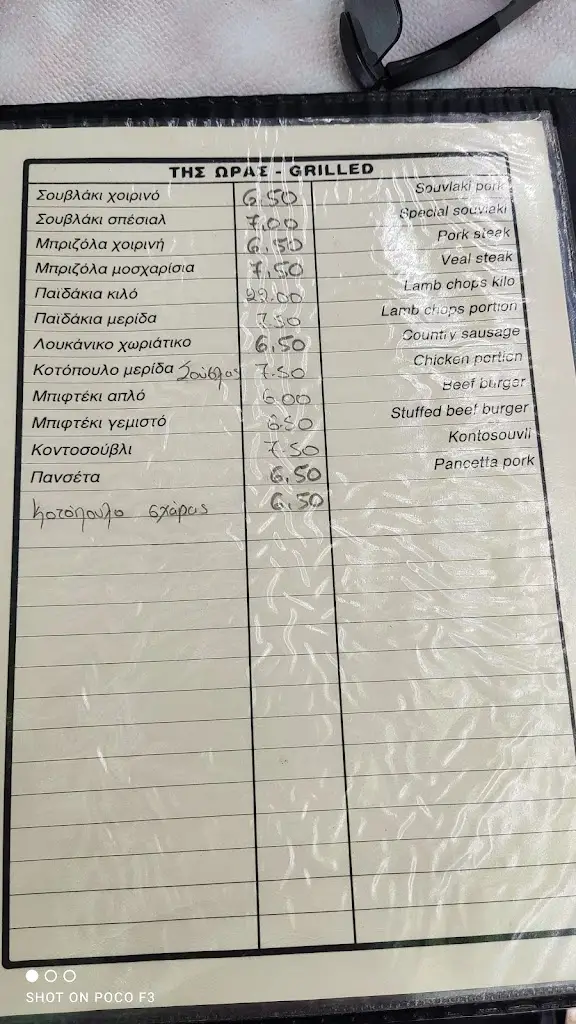 ΤΗΣ ΩΡΑΣ - GRILLED
Σουβλάκι χοιρινό 6.50 Souvlaki pork
Σουβλάκι σπέσιαλ 7.00 Special souvlaki
Μπριζόλα χοιρινή 6.50 Pork steak
Μπριζόλα μοσχαρίσια 7.50 Veal steak
Παϊδάκια κιλό Lamb chops kilo
Παϊδάκια μερίδα 7.50 Lamb chops portion
Λουκάνικο χωριάτικο 6.50 Country sausage
Κοτόπουλο μερίδα Σούβλας 7.50 Chicken portion
Μπιφτέκι απλό 6.00 Beef burger
Μπιφτέκι γεμιστό Stuffed beef burger
Κοντοσούβλι 7.50 Kontosouvli
Πανσέτα 6.50 Pancetta pork
Κοτόπουλο σχάρας 6.50
SHOT ON POCO F3